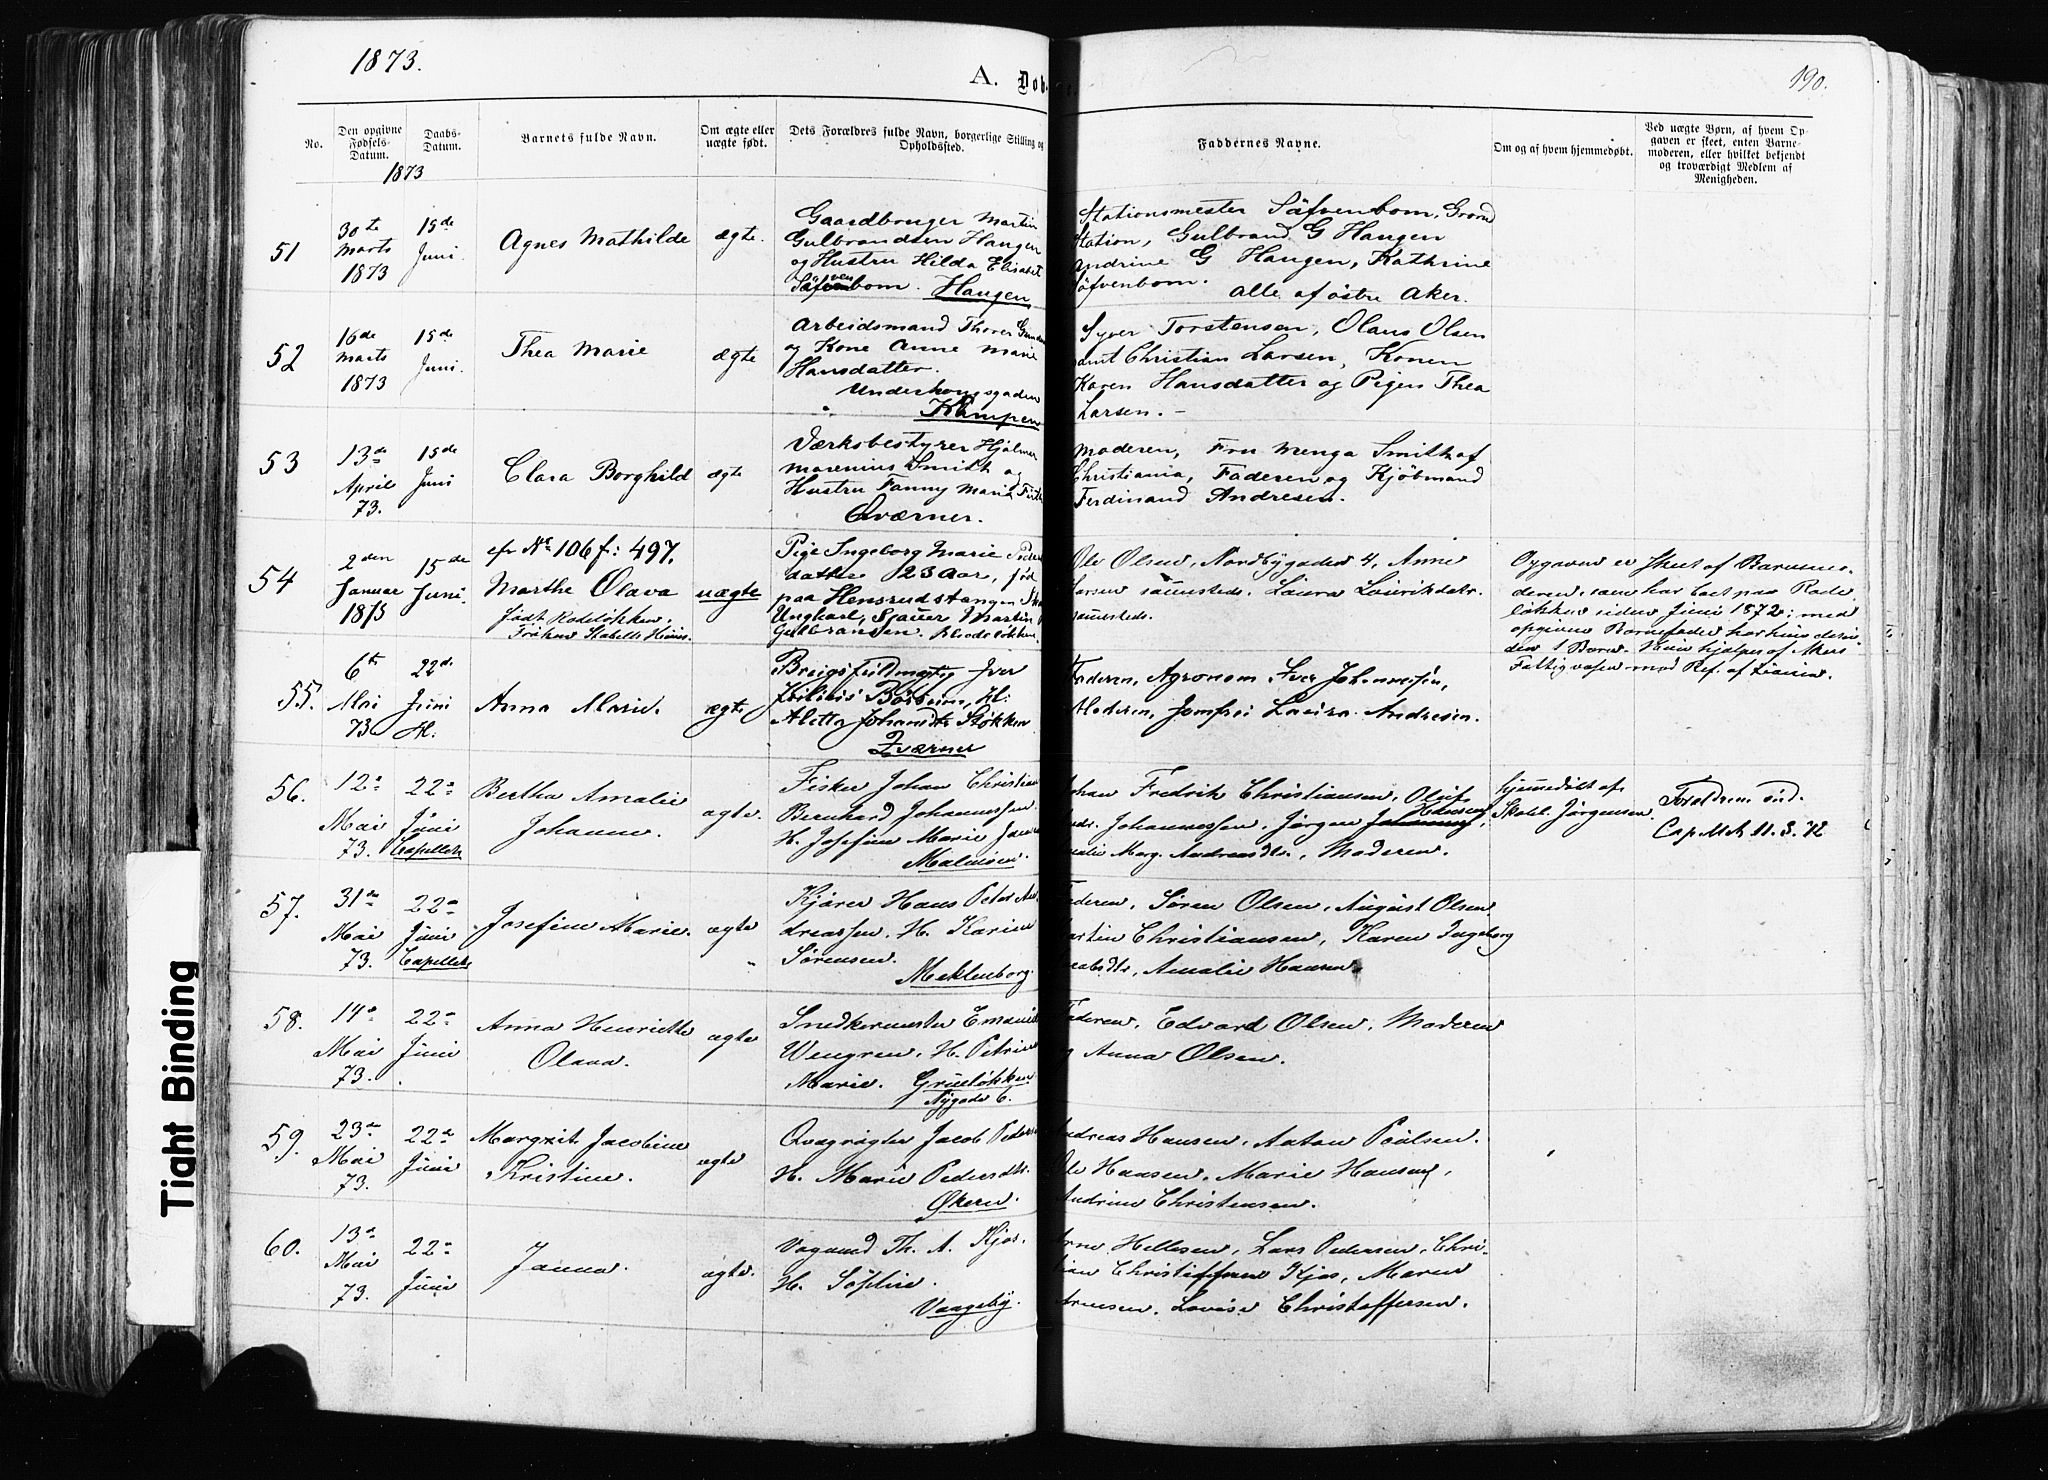 1873.
A. Døb
190.
No.
Den opgivne Fødsels-Datum.
Daabs-Datum.
1873
Barnets fulde Navn.
Om ægte eller uægte født.
Dets Forældres fulde Navn, borgerlige Stilling og Opholdssted.
Faddernes Navne.
Om og af hvem hjemmedøbt.
Ved uægte Børn, af hvem Op-
gaven er skeet, enten Barne-
moderen, eller hvilket bekjendt
og troværdigt Medlem af
Menigheden.
51
30te Marts 1873
15de Juni.
Agnes Mathilde
ægte.
Gaardbruger Martin
Gulbrandsen Haugen
og Hustru Hilda Elisabet
Säfvenbom. Haugen
Stationsmester Säfvenbom, Grorud
Station, Gulbrand G Haugen
Andrine G Haugen, Kathrine
Säfvenbom. Alle af østre Aker.
52
16de Marts 1873
15de Juni.
Thea Marie
ægte
Arbeidsmand Thorer
og Kone Anne Marie
Hansdatter.
Kampen
Syver Torstensen, Olaus Olsen
samt Christian Larsen, Konen
Karen Hansdatter og Pigen Thea
Larsen. –
53
13de April 73.
15de Juni
Clara Borghild
ægte
Værksbestyrer Hjalmar
Marenius Smith og
Hustru Fanny Marie
Qværner.
Moderen, Fru Menga Smith af
Christiania, Faderen og Kjøbmand
Ferdinand Andresen.
54
2den Januar 1873
15de Juni.
cfr No 106 f: 497.
Marthe Olava
født Rodeløkken,
uægte
Pige Ingeborg Marie
datter 23 Aar, fød
paa Hensrudstangen
Ungkarl, Martin
Gulbransen. Rodeløkken.
Ole Olsen, Nordbygaden 4, Anne
Larsen sammesteds. Laura Lauriksdatr.
sammesteds.
Opgaven er skeet af Barnemo-
deren, som har boet paa Rode
løkken siden Juni 1872; med
opgiven Barnefader har hun desu-
den 1 Barn. hjælpes af Akers
Fattigvæsen med Ref. af
55.
6te Mai 73
22de Juni H.
Anna Marie.
ægte
Iver
Aletta Johansdtr Løkken
Qværner
Faderen, Agronom Iver Johannesen,
Moderen, Jomfru Laura Andresen.
56.
12te Mai 73.
22de Juni Capellets
Bertha Amalie
Johanne.
ægte.
Fisker Johan Christian
Bernhard Johannessen.
H. Josefine Marie
Malmøen.
Johan Fredrik Christiansen, Oluf
Andr. Johannessen. Jørgen Hansen,
Marg. Andreasdtr., Moderen.
hjemmedøbt af
Skolel. Jørgensen.
Forældrene
11.3.72
57.
31te Mai 73.
22de Juni Capellets
Josefine Marie.
ægte
"
Kjører Hans Peter An-
dreassen. H. Karine
Sørensen.
Meklenborg.
Faderen, Søren Olsen, August Olsen
Martin Christiansen, Karen Ingeborg
Amalie Hansen
58.
14de Mai 73.
22de Juni
Anna Henriette
Olava.
ægte
Snedkermester Emanuel
Wengren. H. Petrine
Marie. Grünløkken
Nygade 6.
Faderen, Edvard Olsen, Moderen
og Anna Olsen.
59.
23de Mai 73.
22de Juni
Margrit Jacobine
Kristine.
ægte
Qvægrøgter Jacob Peders
H. Marie Pedersdtr.
Økern.
Andreas Hansen, Anton Poulsen.
Ole Hansen, Marie Hansen,
Andrine Christensen.
60.
13de Mai 73.
22de Juni
Janna.
ægte.
Vognmd Th. A. Kjos.
H. Sophie.
Vaageby.
Arne Hellesen, Lars Pedersen, Chri-
tian Christoffersen Kjos, Maren
Arnesen, Lovise Christoffersen.
Tight Binding